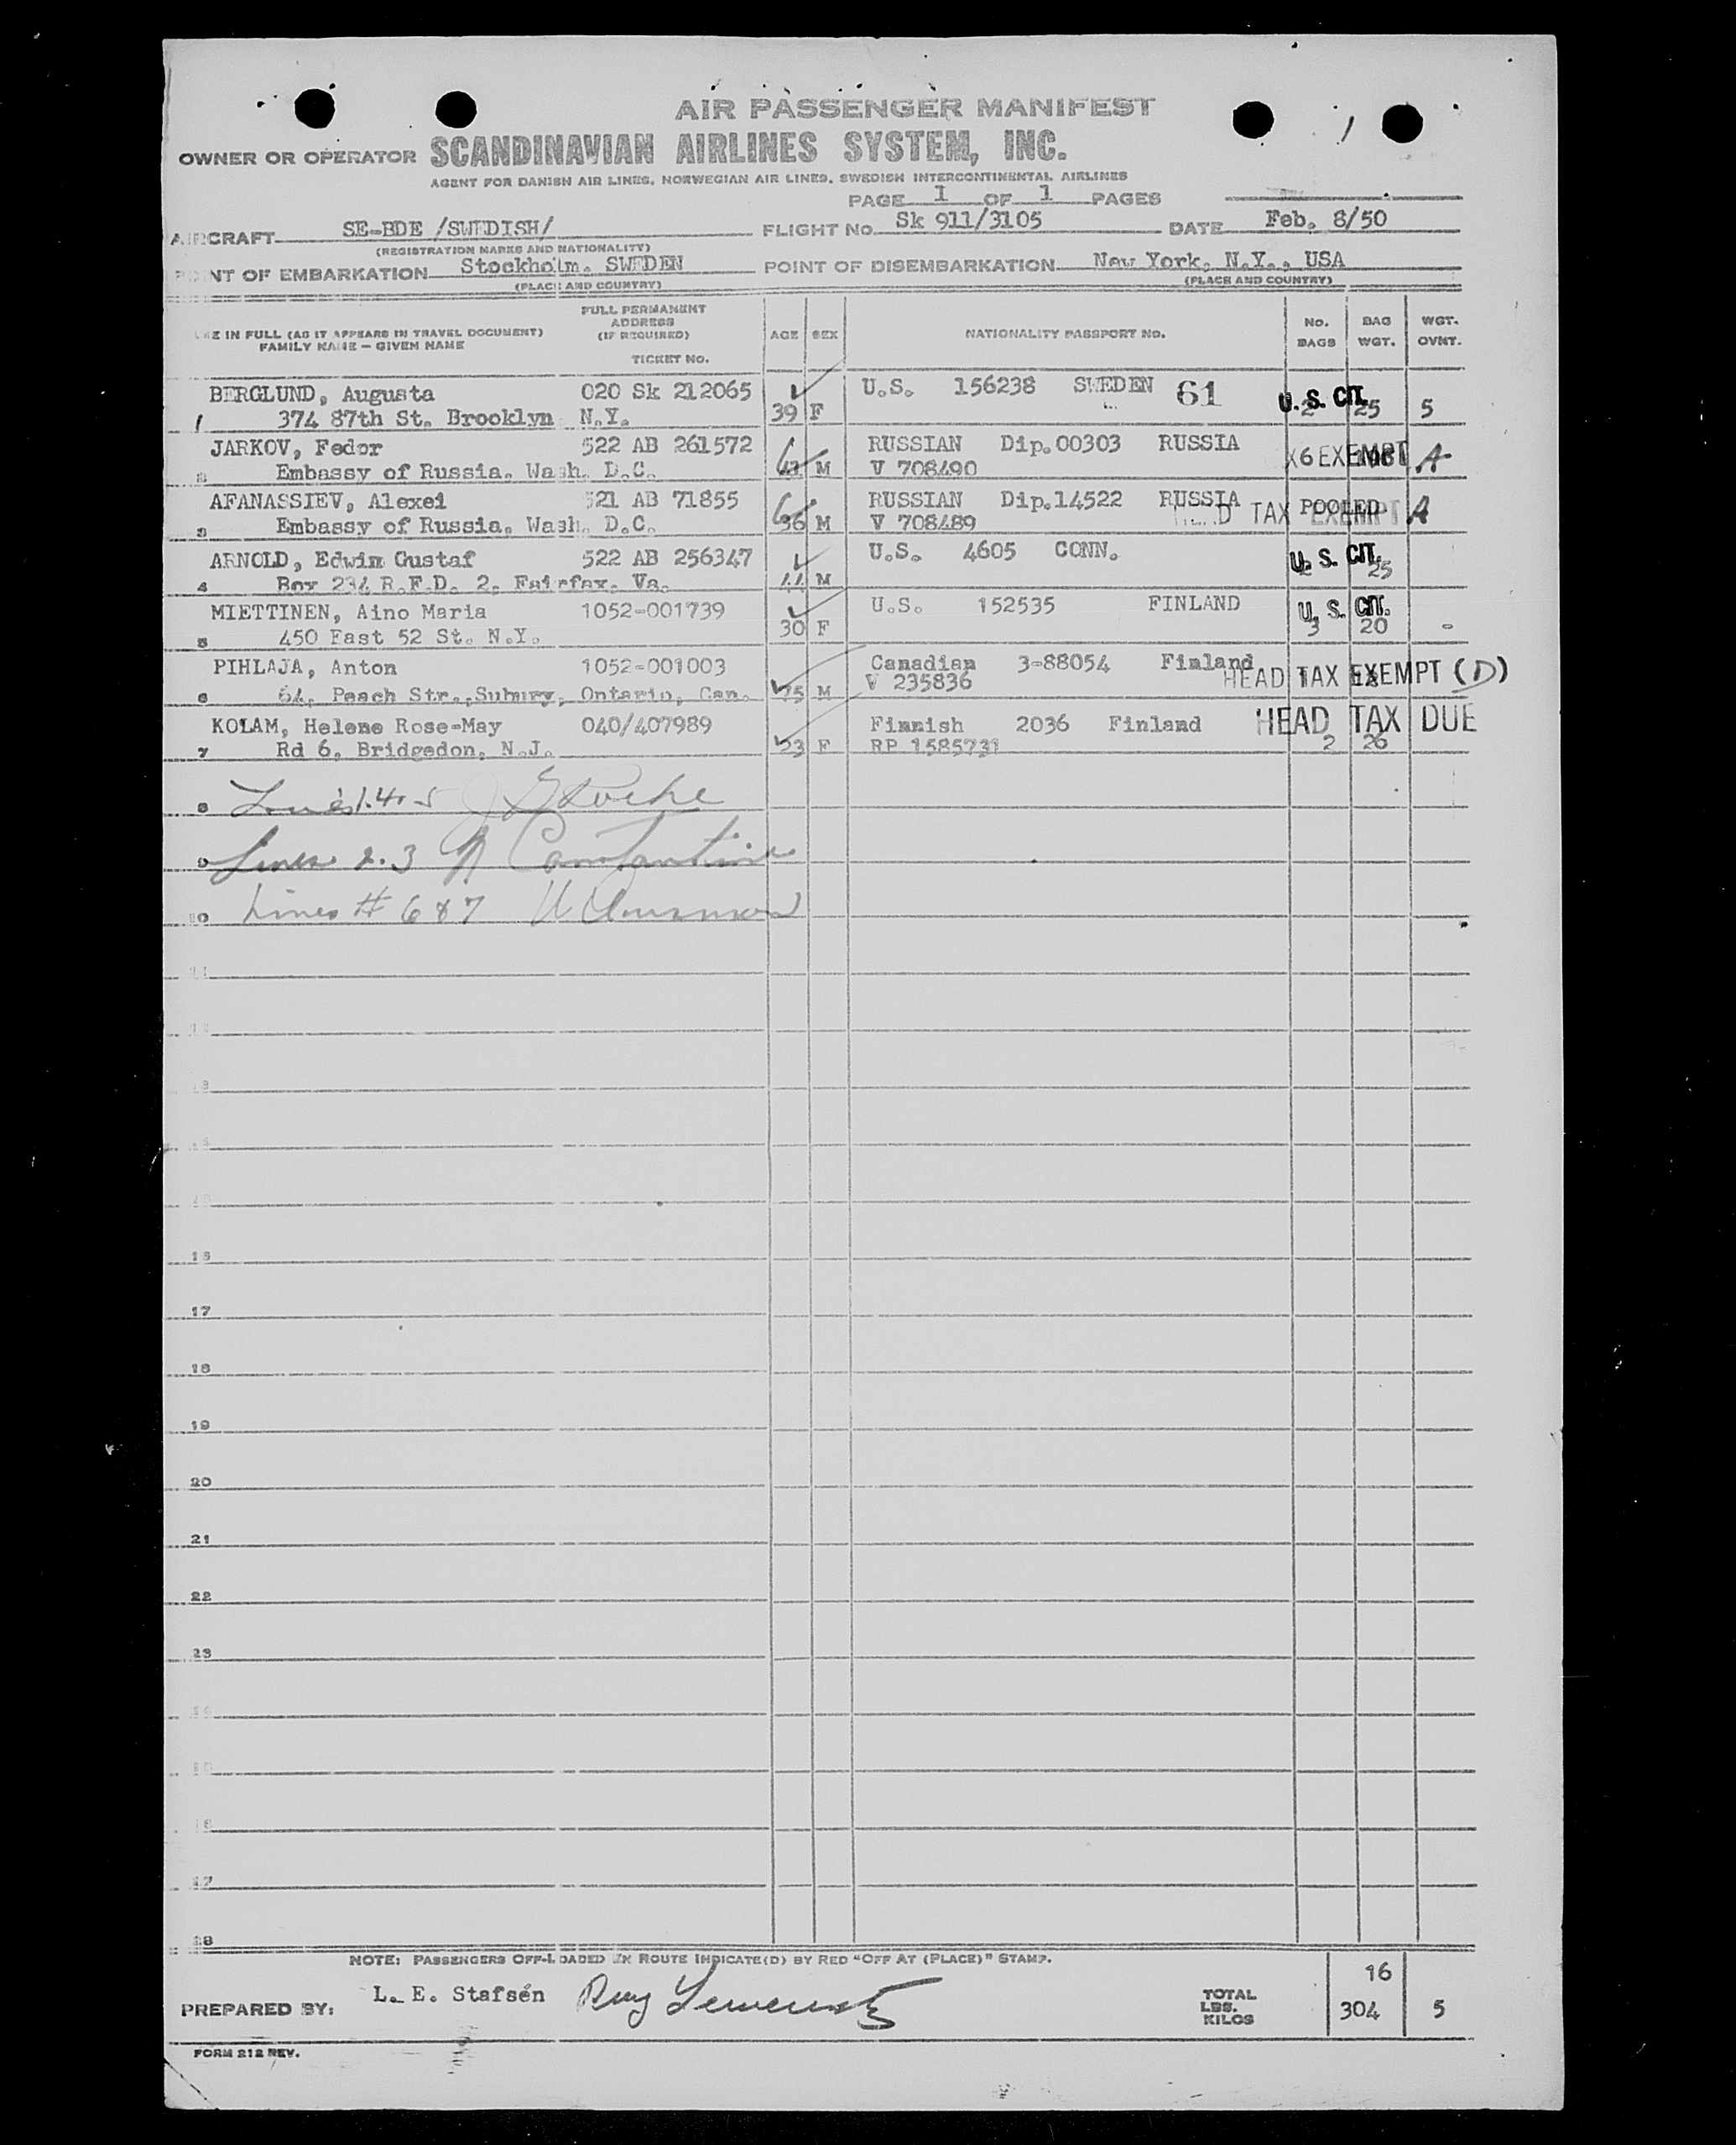 AIR PASSENGER MANIFEST
OWNER OR OPERATOR SCANDINAVIAN AIRLINES SYSTEM, INC.
AGENT FOR DANISH AIR LINES, NORWEGIAN AIR LINES, SWEDISH INTERCONTINENTAL AIRLINES
PAGE 1 OF 1 PAGES
AIRCRAFT SE-BDE /SWEDISH/ FLIGHT NO. Sk 911/3105 DATE Feb. 8/50
(REGISTRATION MARKS AND NATIONALITY)
POINT OF EMBARKATION Stockholm. SWEDEN POINT OF DISEMBARKATION New York, N.Y., USA
(PLACE AND COUNTRY) (PLACE AND COUNTRY)
IN FULL (AS IT APPEARS IN TRAVEL DOCUMENT) FAMILY NAME – GIVEN NAME
FULL PERMANENT ADDRESS (IF REQUIRED) TICKET NO.
AGE SEX NATIONALITY PASSPORT NO. NO. BAGS BAG WGT. WGT. OVWT.
BERGLUND, Augusta 020 Sk 212065 U.S. 156238 SWEDEN 61 U. S. CIT.
1 374 87th St. Brooklyn N.Y. 39 F 2 25 5
JARKOV, Fedor 522 AB 261572 RUSSIAN Dip.00303 RUSSIA
2 Embassy of Russia. Wash. D.C. M V 708490 X6 EXEMPT A
AFANASSIEV, Alexei 521 AB 71855 RUSSIAN Dip.14522 RUSSIA POOLED
3 Embassy of Russia. Wash. D.C. 36 M V 708489 HEAD TAX EXEMPT A
ARNOLD, Edwin Gustaf 522 AB 256347 U.S. 4605 CONN. U. S. CIT.
4 Box 234 R.F.D. 2, Fairfax. Va. 44 M 25
MIETTINEN, Aino Maria 1052-001739 U.S. 152535 FINLAND U. S. CIT.
5 450 East 52 St. N.Y. 30 F 3 20 -
PIHLAJA, Anton 1052-001003 Canadian 3-88054 Finland
6 64, Peach Str.,Subury, Ontario, Can. 75 M V 235836 HEAD TAX EXEMPT (D)
KOLAM, Helene Rose-May 040/407989 Finnish 2036 Finland HEAD TAX DUE
7 Rd 6, Bridgedon, N.J. 23 F RP 1585731 2 26
8 Lines 1.4.5
9 Lines 2.3 Constantine
10 Lines # 6 & 7
11
12
13
16
17
18
19
20
21
22
23
28
NOTE: PASSENGERS OFF-LOADED EN ROUTE INDICATE(D) BY RED "OFF AT (PLACE)" STAMP.
16
PREPARED BY: L. E. Stafsén TOTAL LBS. KILOS 304 5
FORM 212 REV.